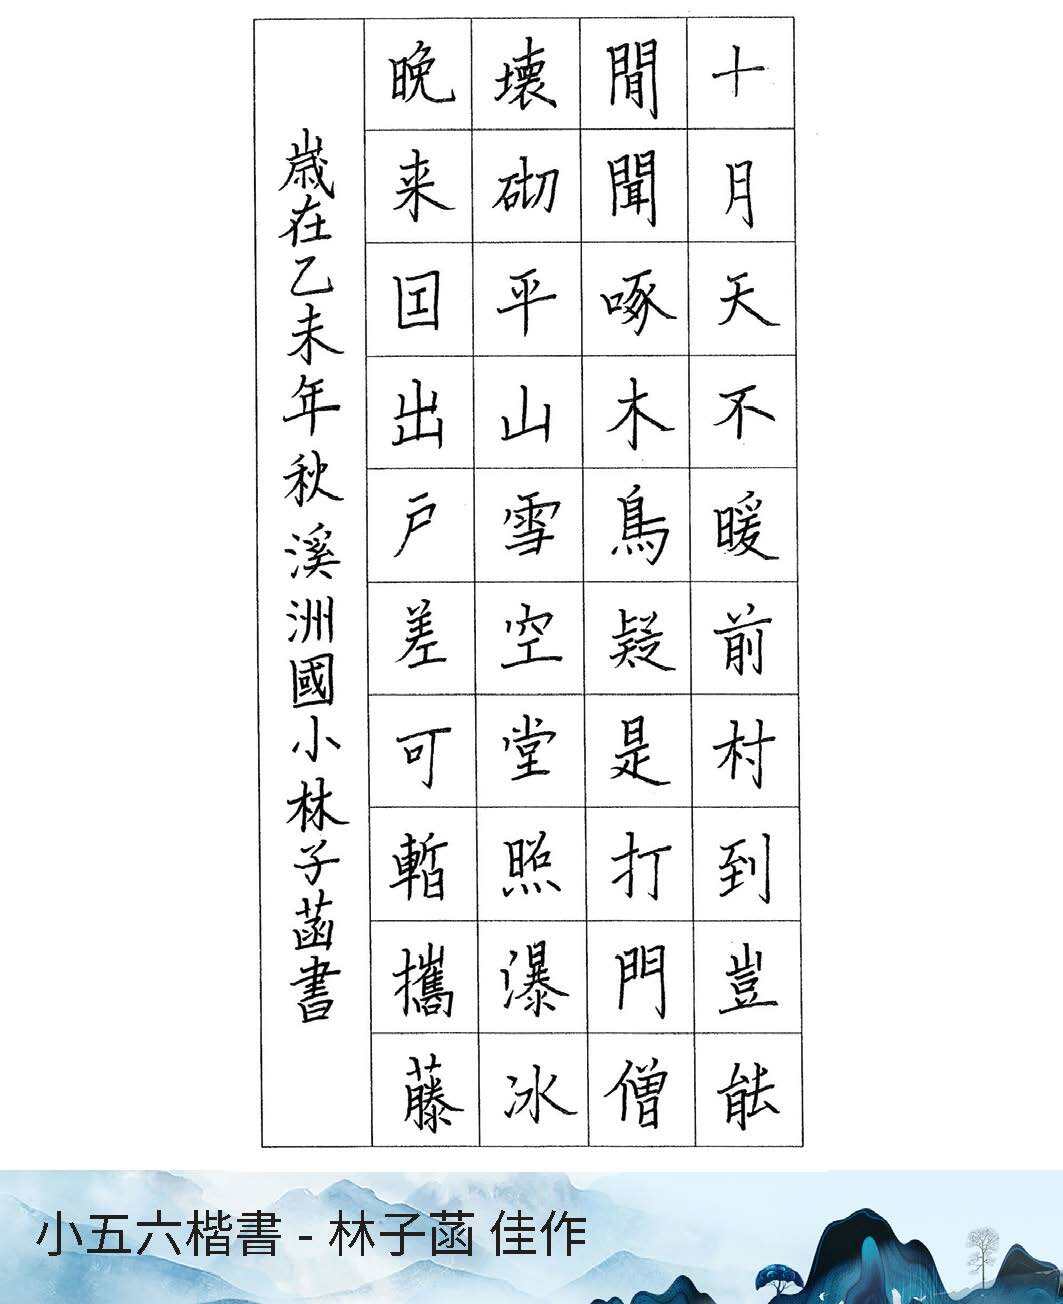 十月天不暖前村到豈能
閒聞啄木鳥疑是打門僧
壞砌平山雪空堂照瀑冰
晚来囯出戶差可暫攜藤
歲在乙未年秋溪洲國小林子菡書
小五六楷書 - 林子菡 佳作